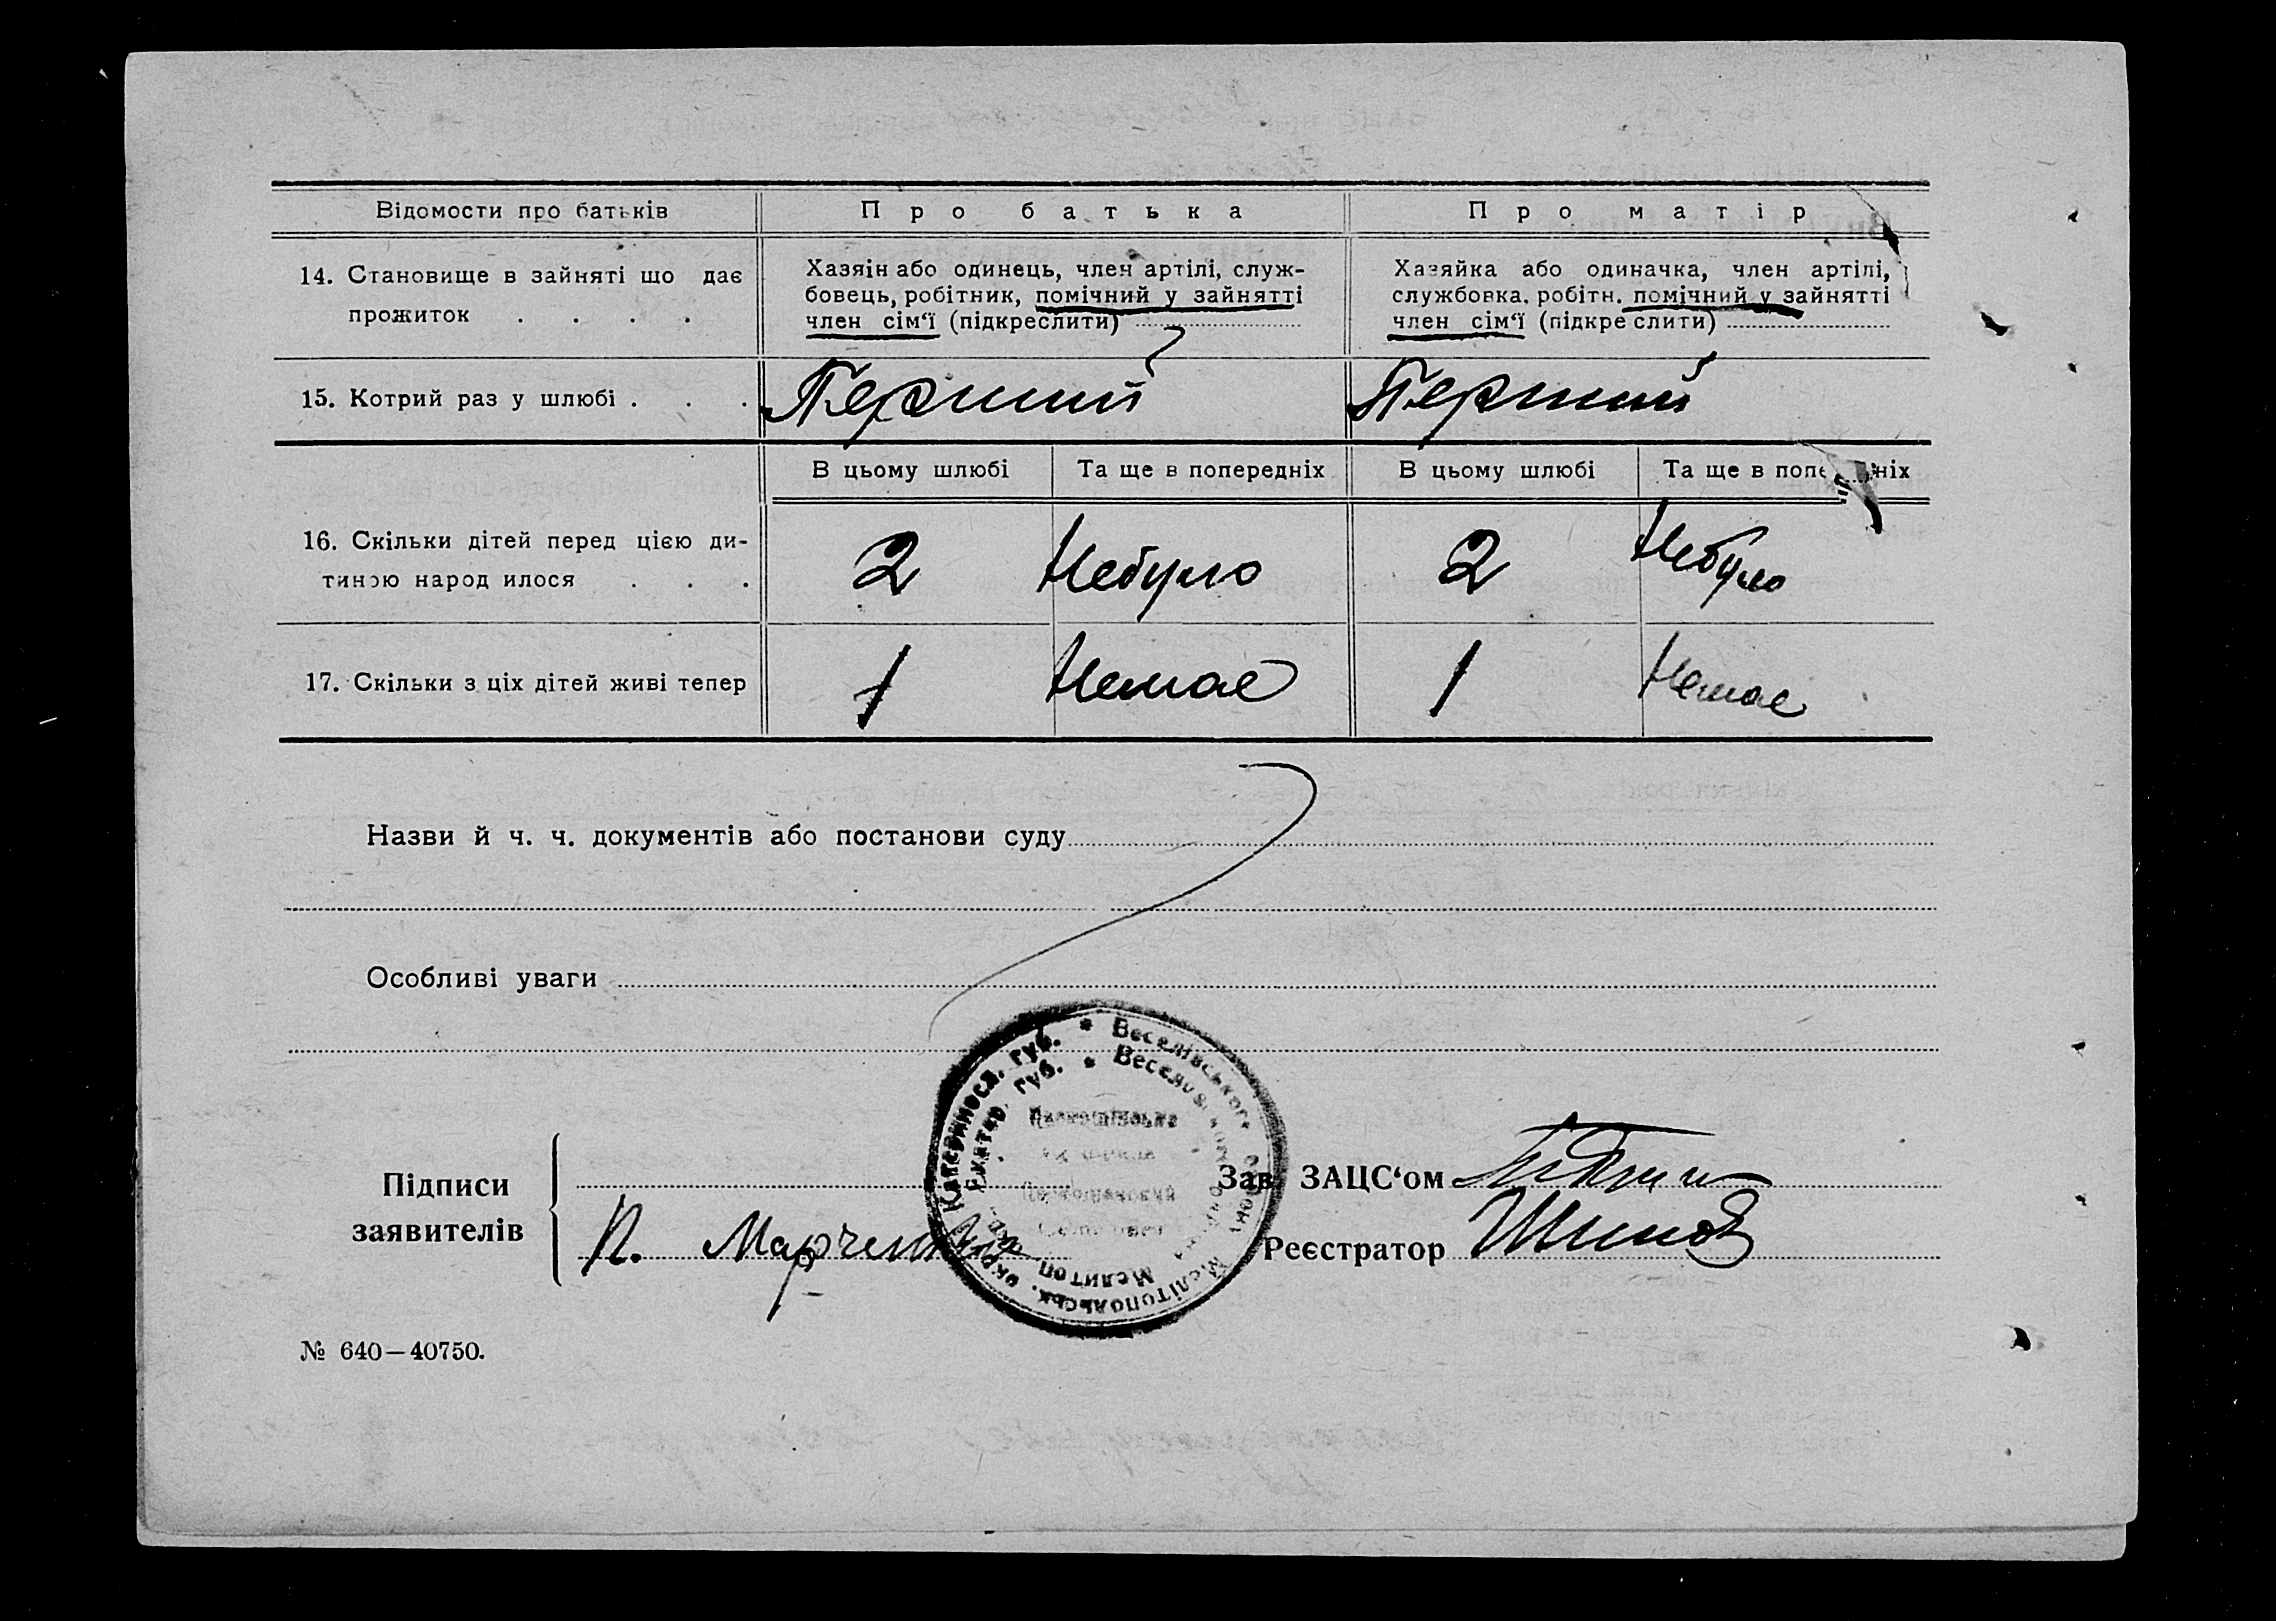 Відомости про батьків
Про батька
Про матір
14. Становище в зайняті що дає
прожиток . . . .
Хазяін або одинець, член артілі, служ-
бовець, робітник, помічний у зайнятті
член сім‘ї (підкреслити)
Хазяйка або одиначка, член артілі,
службовка, робітн. помічний у зайнятті
член сім‘ї (підкре слити)
15. Котрий раз у шлюбі . . .
Перший
Перший
В цьому шлюбі
Та ще в попередніх
В цьому шлюбі
Та ще в попе ніх
16. Скільки дітей перед цією ди-
тиною народ илося . . .
2
Небуло
2
Небуло
17. Скільки з ціх дітей живі тепер
1
Немає
1
Немає
Назви й ч. ч. документів або постанови суду
Особливі уваги
Катериносл. губ. * Веселівського району Мелітопольськ. окр.
Екатер. губ. * Веселовск Мелитоп.
Підписи
заявителів
П. Марченко
Зав. ЗАЦС‘ом
Реєстратор
№ 640—40750.